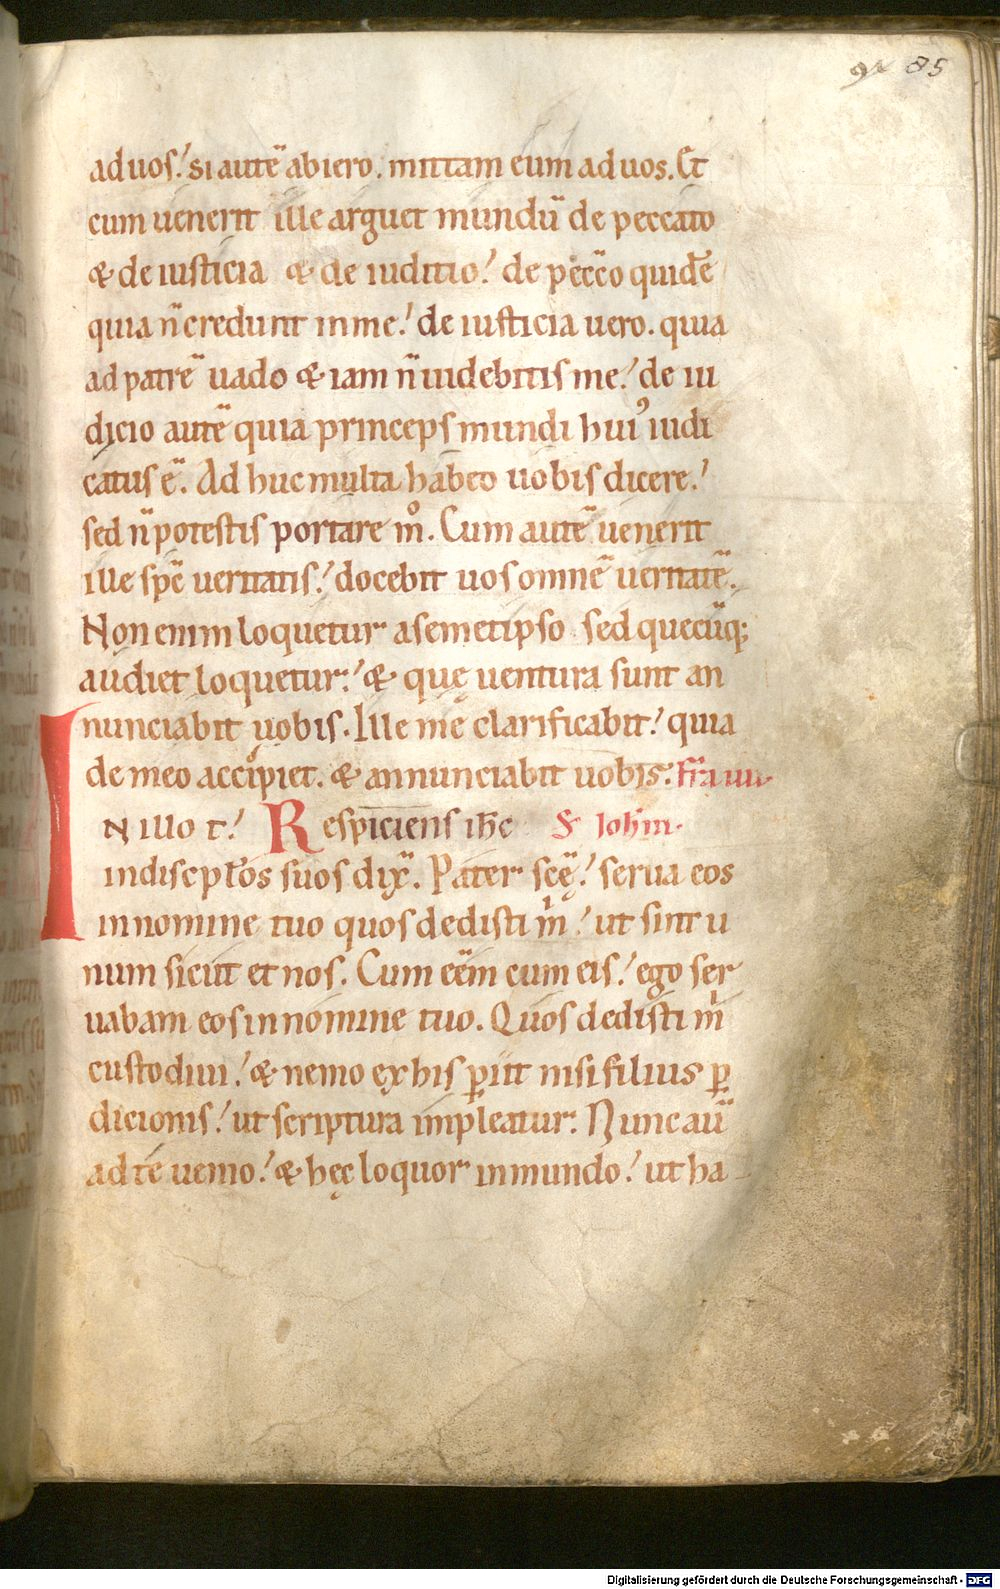 91 85
ad uos. si autē abiero. mittam eum ad uos. Et
cum uenerit ille arguet mundū de peccato
& de iusticia & de iuditio. de pecc̄o quidē
quia n̄ credunt in me. de iusticia uero. quia
ad patrē uado & iam n̄ uidebitis me. de iu
dicio autē quia princeps mundi huiꝰ iudi
catus ē. Ad huc multa habeo uobis dicere.
sed n̄ potestis portare mͦ. Cum autē uenerit
ille spc̄ ueritatis. docebit uos omnē ueritatē.
Non enim loquetur a semetipso sed quecūq;
audiet loquetur. & quę uentura sunt an
nunciabit uobis. Ille me clarificabit. quia
de meo accipiet. & annunciabit uobis. fr̄a iiii.
IN illo t. Respiciens ihc S Iohm̄.
in discipl̄os suos dix̄. Pater scę̄. serua eos
in nomine tuo quos dedisti mͥ. ut sint u
num sicut et nos. Cum eēm cum eis. ego ser
uabam eos in nomine tuo. Quos dedisti mͥ
custodiui. & nemo ex his ꝑiit nisi filius ꝑ
dicionis. ut scriptura impleatur. Nunc aū
ad te uenio. & hęc loquor in mundo. ut ha
Digitalisierung gefördert durch die Deutsche Forschungsgemeinschaft - DFG